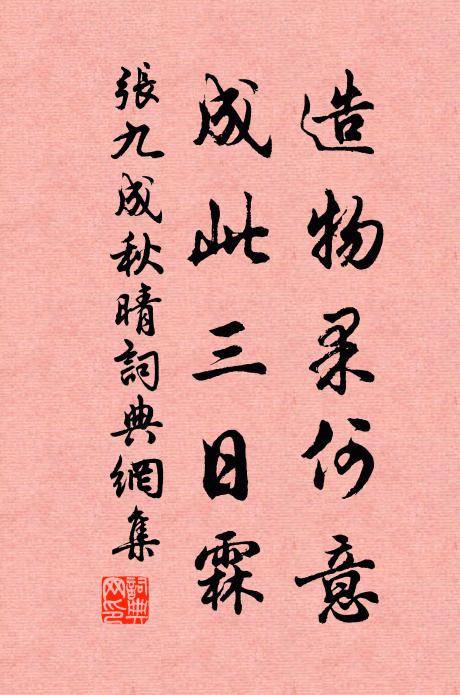 造物果何意
成此三日霖
張九成秋晴詞典網集
詞典網印